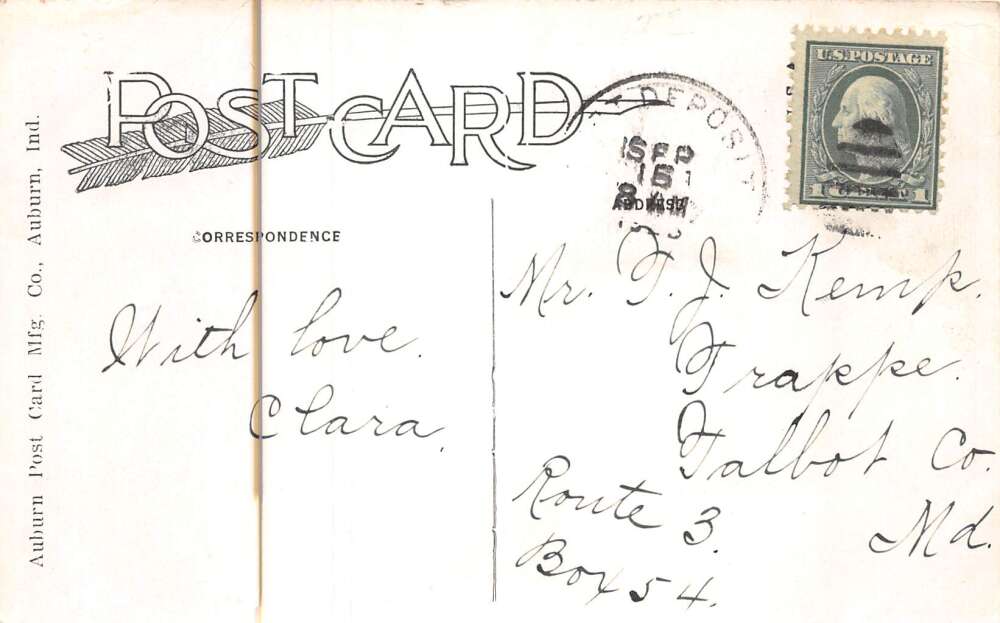 POST CARD
DEPOSIT
SEP
16
8 AM
U.S. POSTAGE
1 1
ADDRESS
CORRESPONDENCE
With love.
Clara.
Mr. T. J. Kemp.
Trappe.
Talbot Co.
Md.
Route 3.
Box 54.
Auburn Post Card Mfg. Co., Auburn, Ind.